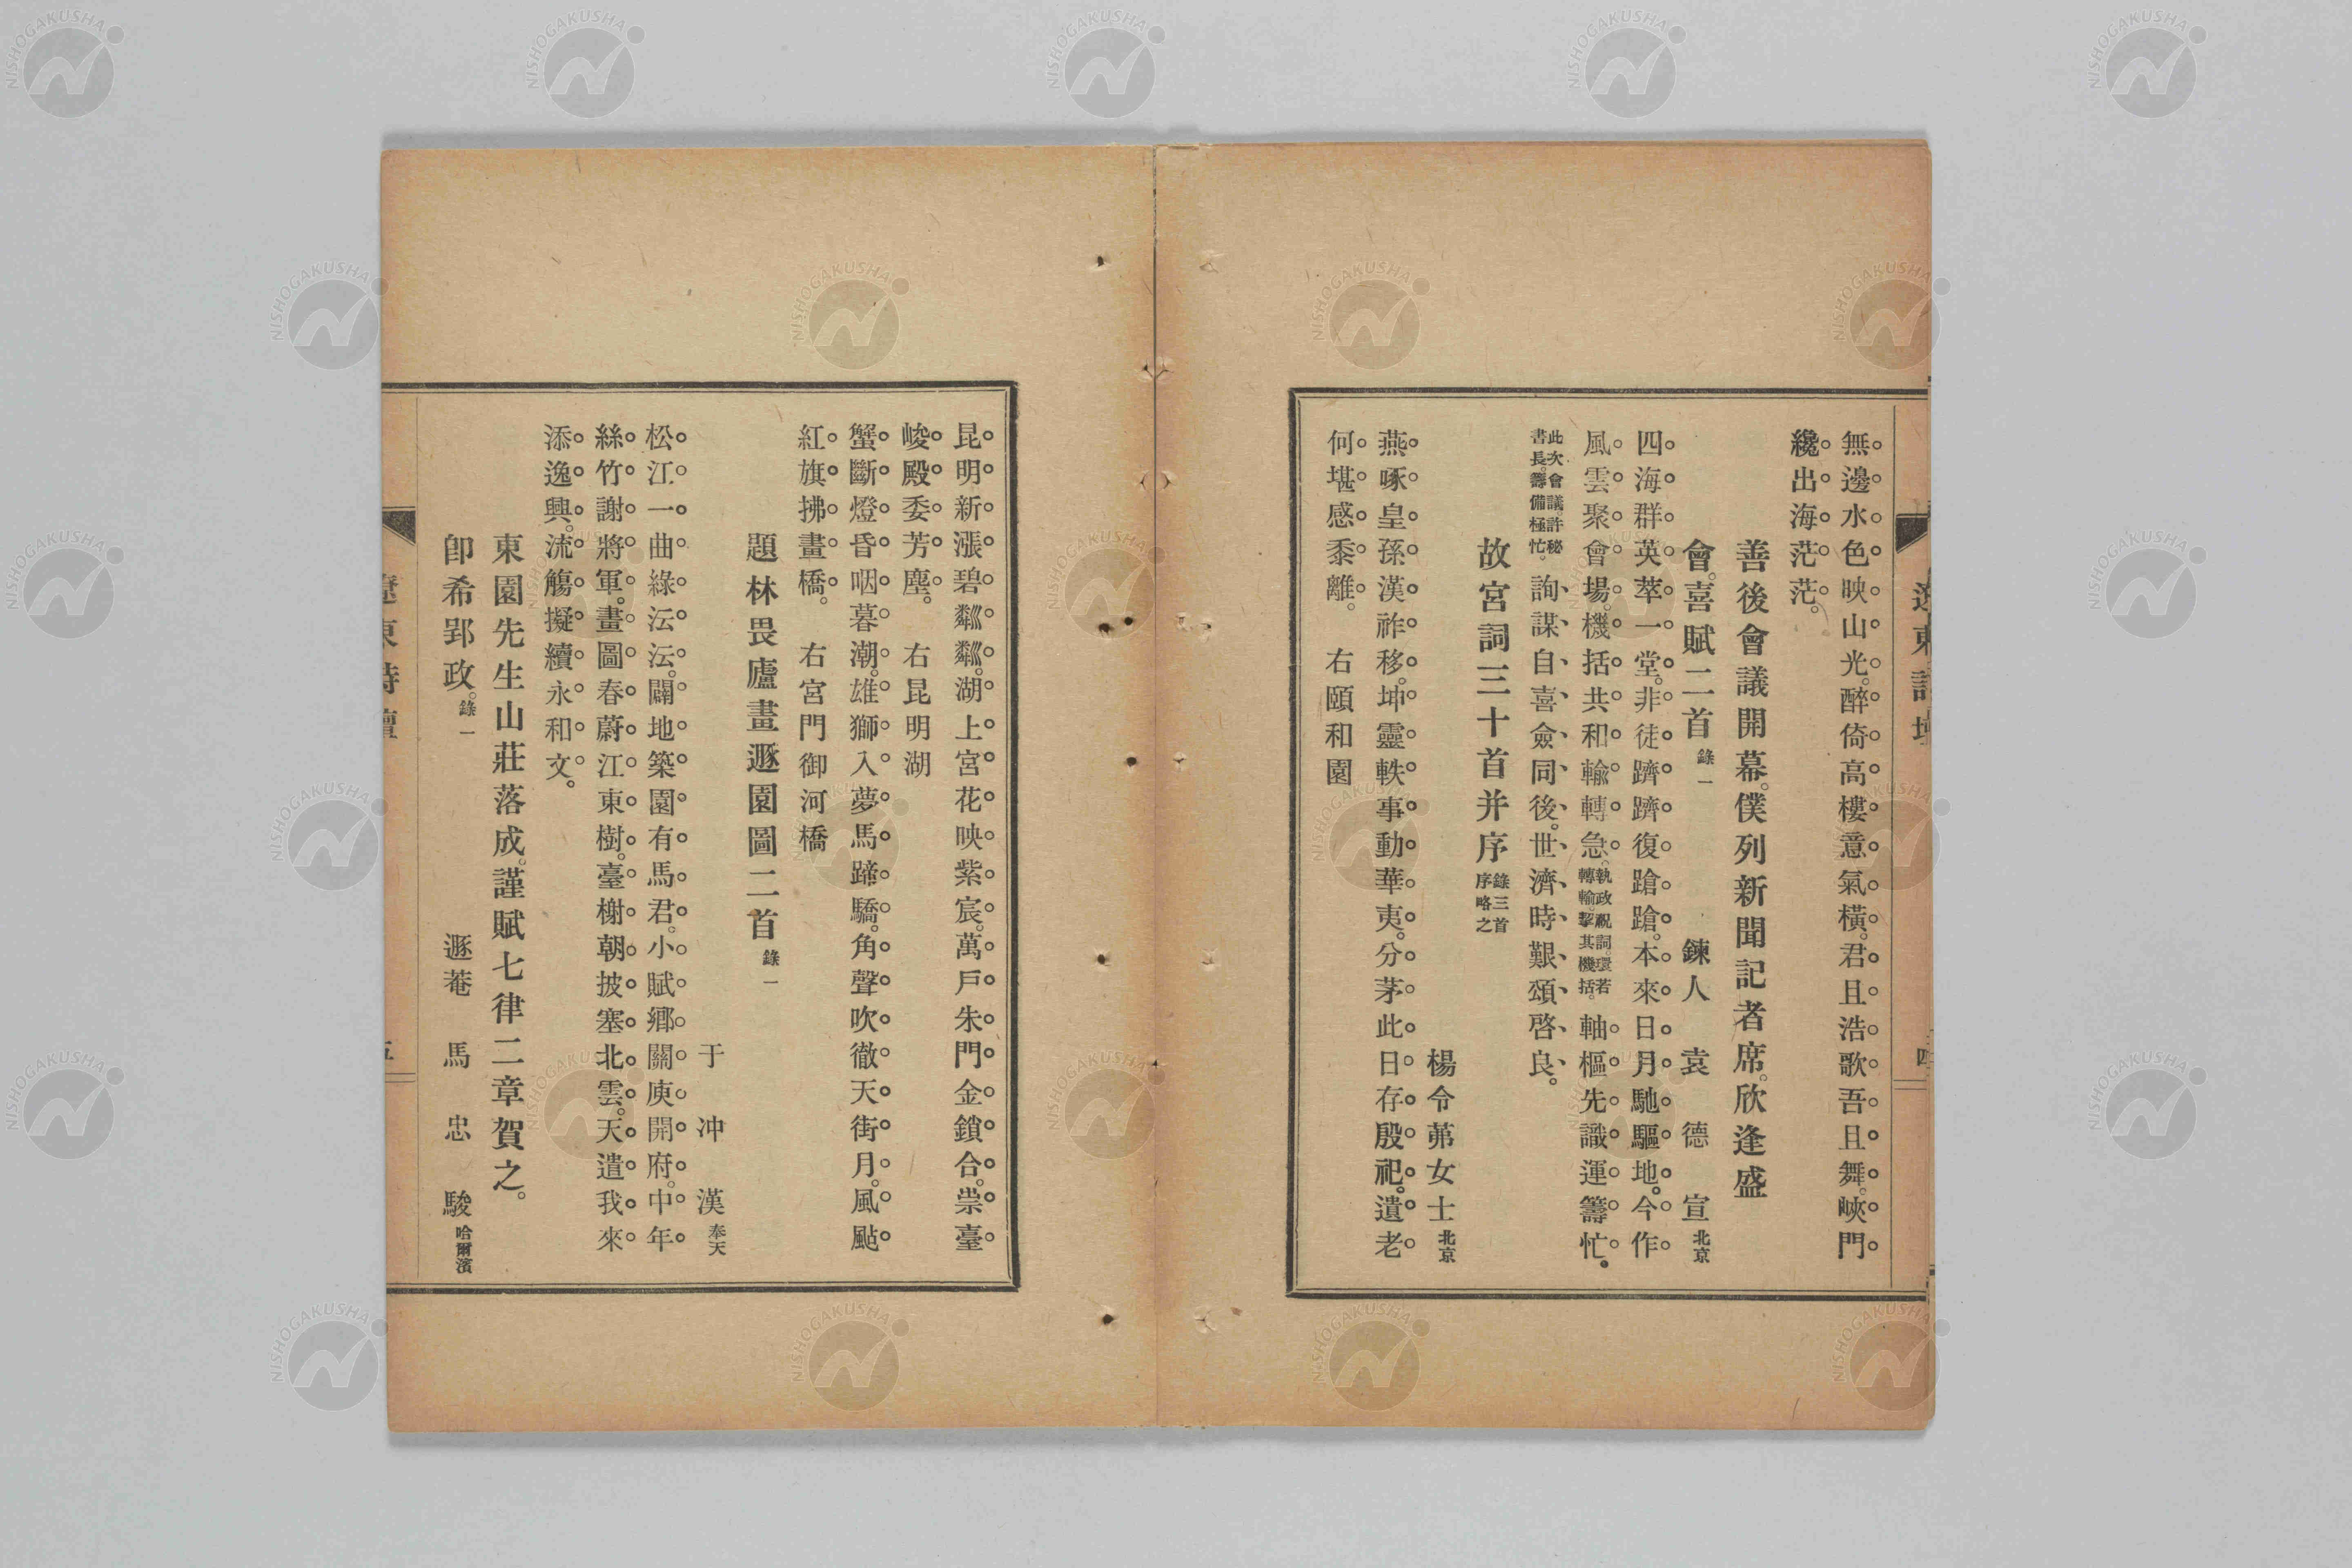 無邊水色映山光。醉倚高樓意氣橫。君且浩歌吾且舞。峽門
纔出海茫茫。
善後會議開幕。僕列新聞記者席。欣逢盛
會。喜賦二首 錄一 鍊人 袁德宣 北京
四海群英萃一堂。非徒躋躋復蹌蹌。本來日月馳驅地。今作
風雲聚會場。機括共和輸轉急。執政祝詞。環若轉輪。挈其機括。軸樞先識運籌忙。
此次會議。許秘書長。籌備極忙。詢謀自喜僉同後。世濟時艱頌啓良。
故宮詞三十首并序 錄三首序略之
楊令茀女士 北京
燕啄皇孫漢祚移。坤靈軼事動華夷。分茅此日存殷祀。遺老
何堪感黍離。 右頤和園
遼東詩壇 四
昆明新漲碧粼粼。湖上宮花映紫宸。萬戶朱門金鎖合。崇臺
峻殿委芳塵。 右昆明湖
蟹斷燈昏咽暮潮。雄獅入夢馬蹄驕。角聲吹徹天街月。風颭
紅旗拂畫橋。 右宮門御河橋
題林畏廬畫遯園圖二首 錄一
于冲漢 奉天
松江一曲綠沄沄。闢地築園有馬君。小賦鄉關庾開府。中年
絲竹謝將軍。畫圖春蔚江東樹。臺榭朝披塞北雲。天遣我來
添逸興。流觴擬續永和文。
東園先生山莊落成。謹賦七律二章賀之。
卽希郢政。錄一 遯菴 馬忠駿 哈爾濱
遼東詩壇 五